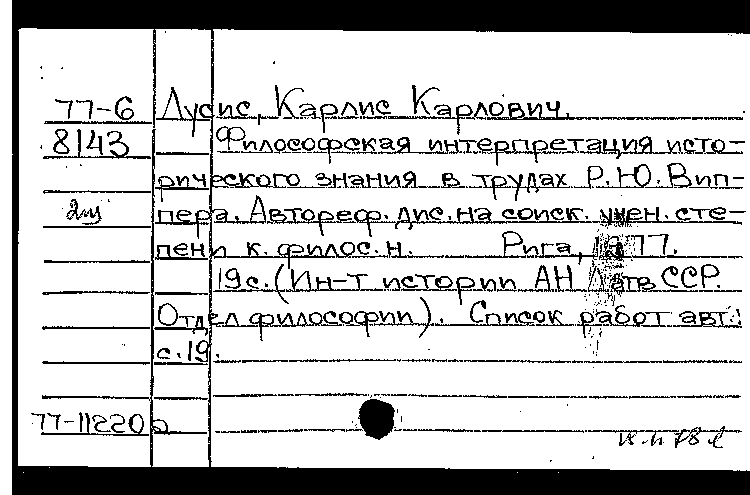 77-6 Лусис, Карлис Карлович.
8143 Философская интерпретация исто-
рического знания в трудах Р.Ю. Вип-
пера. Автореф. дис. на соиск. учен. сте-
пени к. филос. н. Рига, 1977.
19с. (Ин-т истории АН Латв ССР.
Отдел философии). Список работ авт.:
с. 19.
77-11220